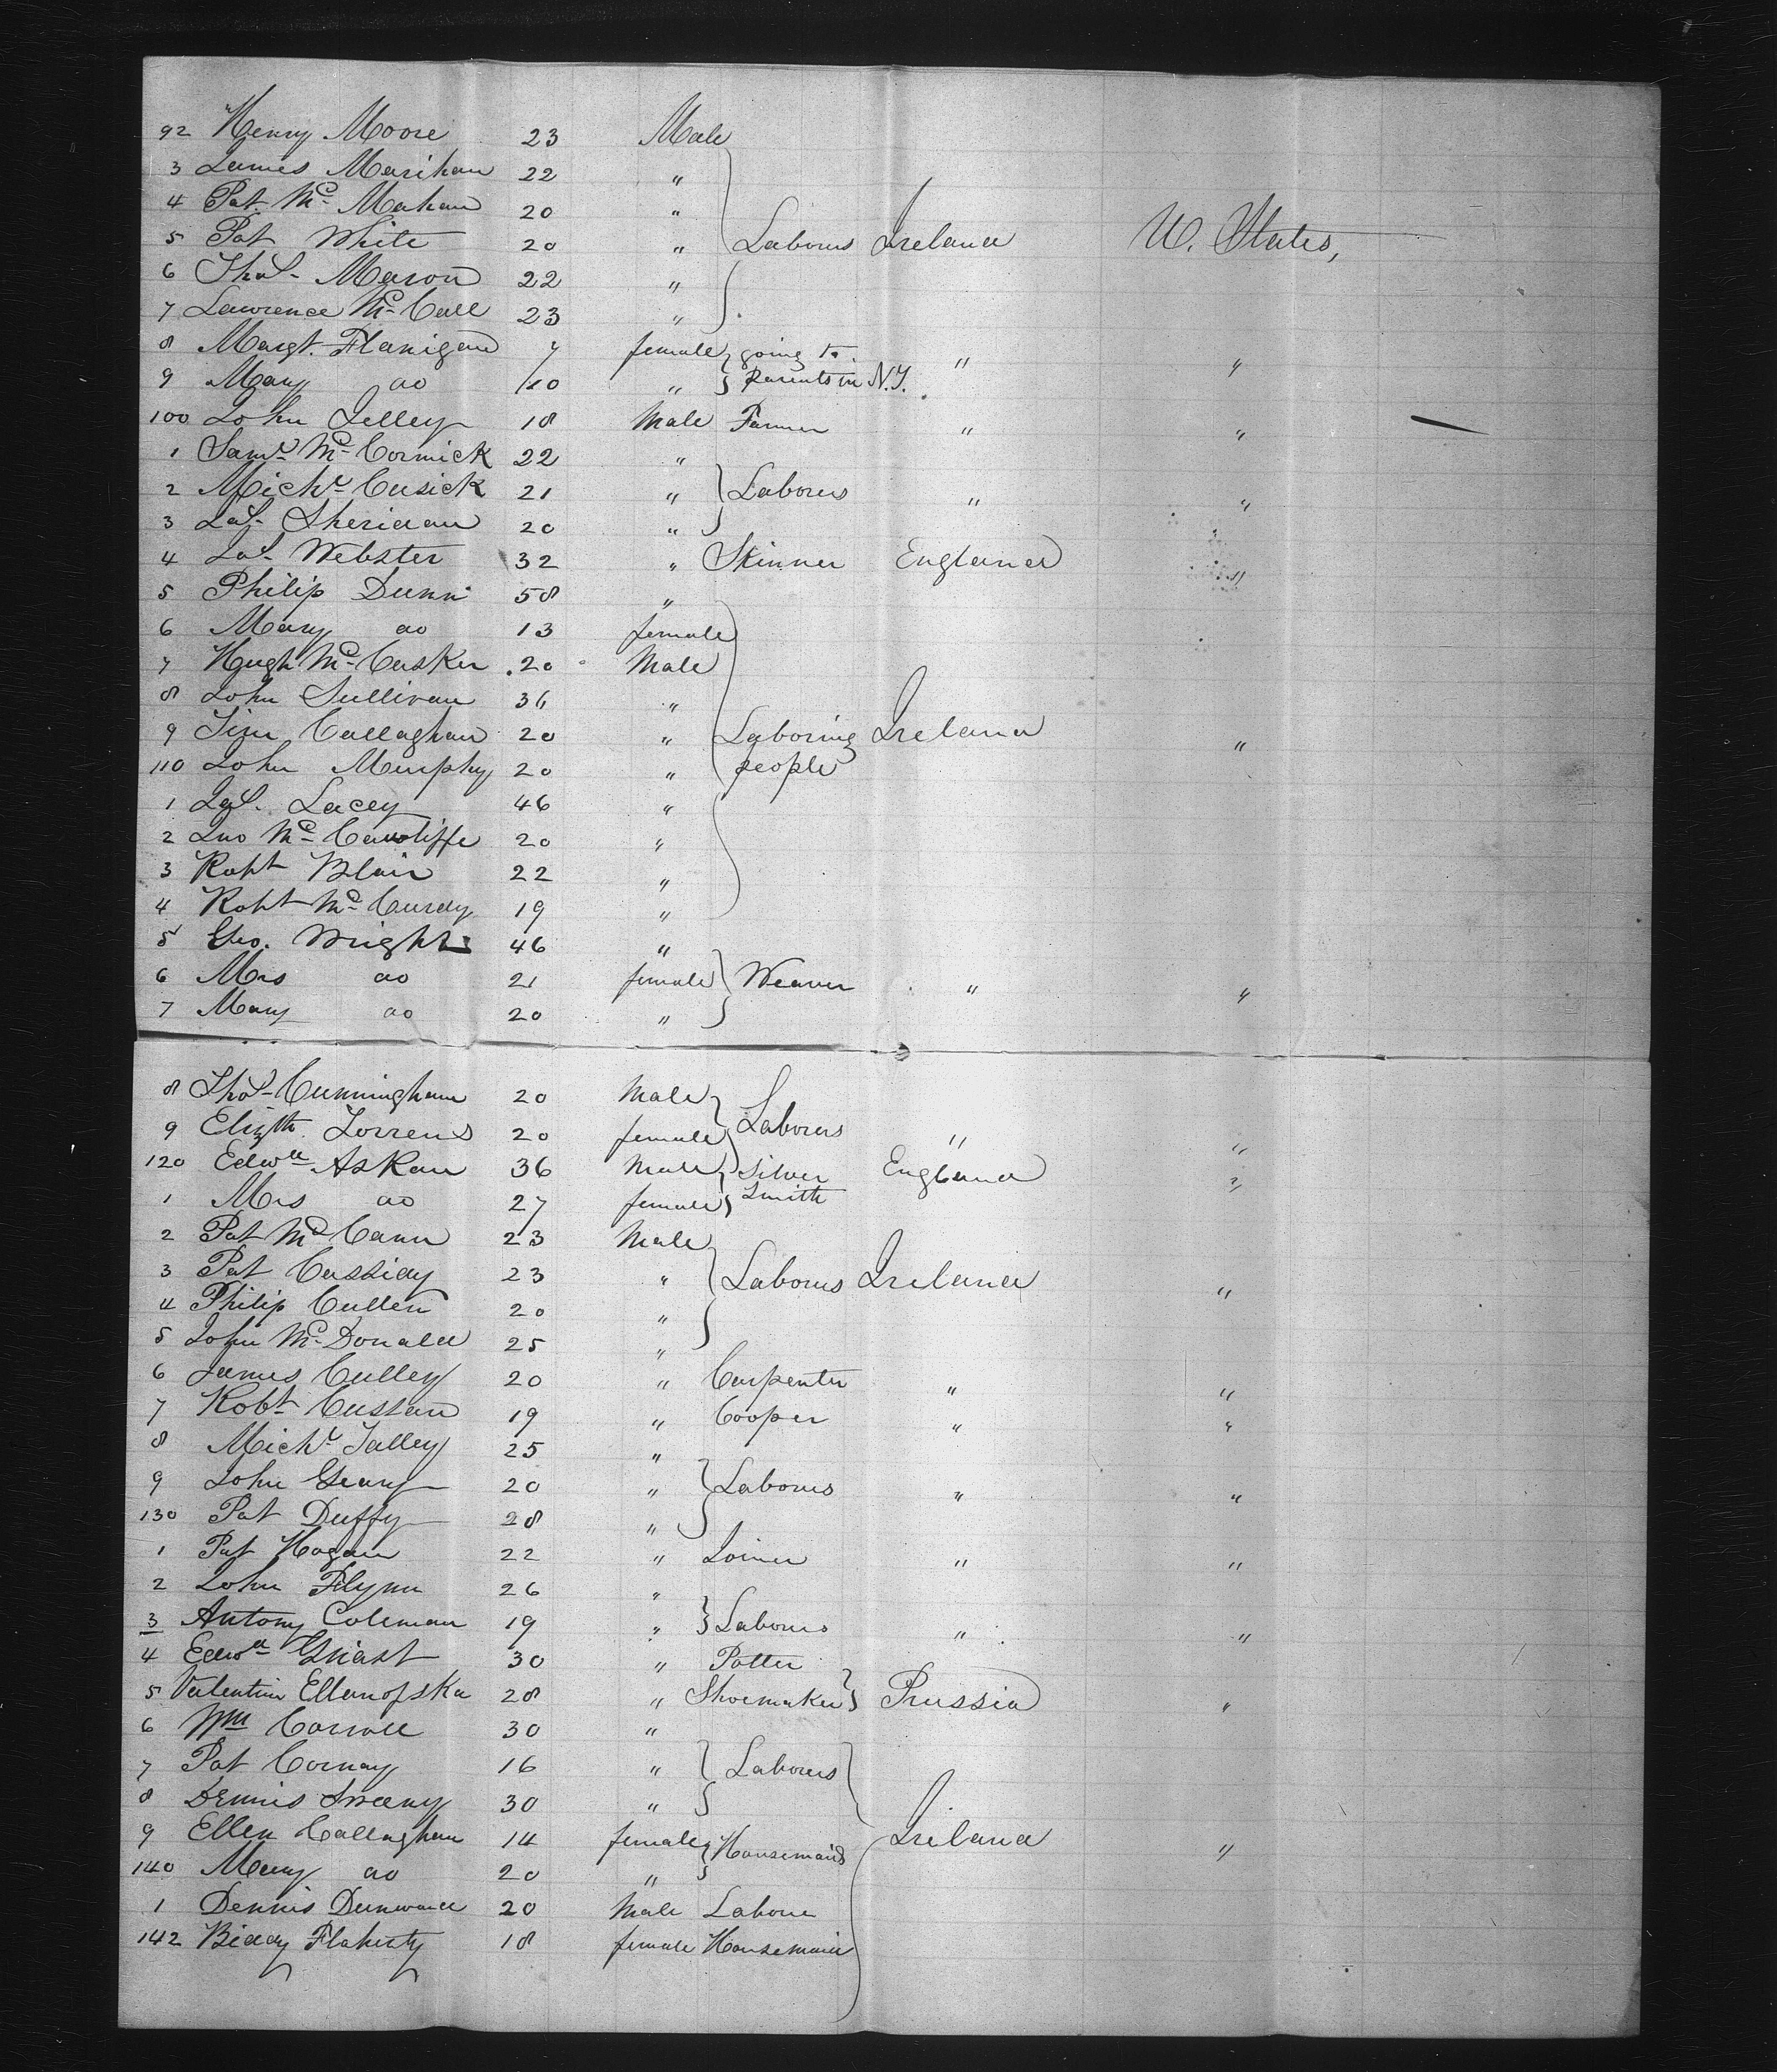 92 Henry Moore 23 Male
3 James Marihan 22 "
4 Pat. Mc Mahan 20 "
5 Pat White 20 " Laborers Ireland U. States,
6 Thos. Mason 22 "
7 Lawrence Mc Call 23 "
8 Margt. Flanigan 7 female going to " "
9 Mary do 10 " parents in N.Y.
100 John Jelley 18 Male Farmer " "
1 Saml Mc Cormick 22 "
2 Michl Cusick 21 " Laborers " "
3 Jas. Sheridan 20 "
4 Jas. Webster 32 " Skinner England "
5 Philip Dunn 58 "
6 Mary do 13 female
7 Hugh Mc Cusker 20 Male
8 John Sullivan 36 "
9 Tim Callaghan 20 " Laboring Ireland "
110 John Murphy 20 " people
1 Jas. Lacey 46 "
2 Jno Mc 20 "
3 Robt Blair 22 "
4 Robt Mc Curdy 19 "
5 Geo. Wright 46 "
6 Mrs do 21 female Weaver " "
7 Mary do 20 "
8 Thos. Cunningham 20 Male
9 Elizth Torrens 20 female Laborers " "
120 Edwd Askan 36 Male Silver England "
1 Mrs do 27 female Smith
2 Pat Mc Cann 23 Male
3 Pat Cassidy 23 " Laborers Ireland "
4 Philip Cullen 20 "
5 John Mc Donald 25 "
6 James Culley 20 " Carpenter " "
7 Robt 19 " Cooper " "
8 Michl Talley 25 "
9 John Geary 20 " Laborers " "
130 Pat Duffy 28 "
1 Pat Hogan 22 " Joiner " "
2 John Flynn 26 "
3 Antony Coleman 19 " Laborers " "
4 Edwd 30 " Potter
5 Valentin Ellanofska 28 " Shoemaker Prussia "
6 Wm Carroll 30 "
7 Pat Cornay 16 " Laborers
8 Dennis Sweeny 30 "
9 Ellen Callaghan 14 female Housemaids Ireland "
140 Mary do 20 "
1 Dennis 20 Male Laborer
142 Biddy Flaherty 18 female Housemaid